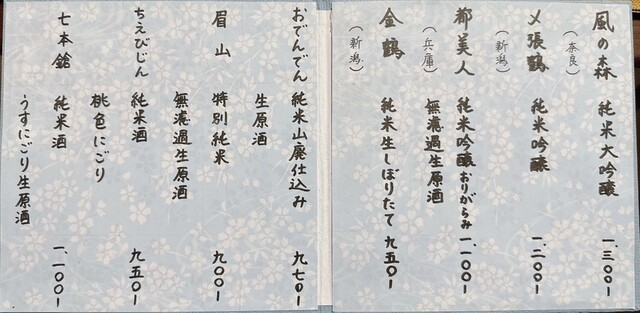 風の森 純米大吟醸 一、三〇〇-
(奈良)
〆張鶴 純米吟醸 一、二〇〇-
(新潟)
都美人 純米吟醸おりがらみ 一、一〇〇-
(兵庫) 無濾過生原酒
金鶴 純米生しぼりたて 九五〇-
(新潟)
おでんでん 純米山廃仕込み 九七〇-
生原酒
眉山 特別純米 九〇〇-
無濾過生原酒
ちえびじん 純米酒 九五〇-
桃色にごり
七本鎗 純米酒 一、一〇〇-
うすにごり生原酒